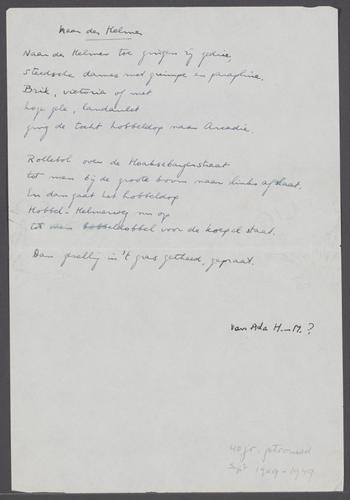 Naar de Kelmer
Naar de Kelmer toe gingen zij gedrie,
Steedsche dames met guimpe en parapluie.
Brik, victoria of met
hoge gele, landaulet
ging de tocht hobbeldop naar Arcadie.
Rollebol over de Haaksebergerstraat
tot men bij de groote boom naar links afslaat.
En dan gaat het hobbeldop
Hobbel-Kelmerweg nu op
tot men hobbeldobbel voor de koepel staat.
Dan gezellig in 't gras getheed, gepraat.
van Ada H-M.?
40 jr. getrouwd
Sept 1909-1949